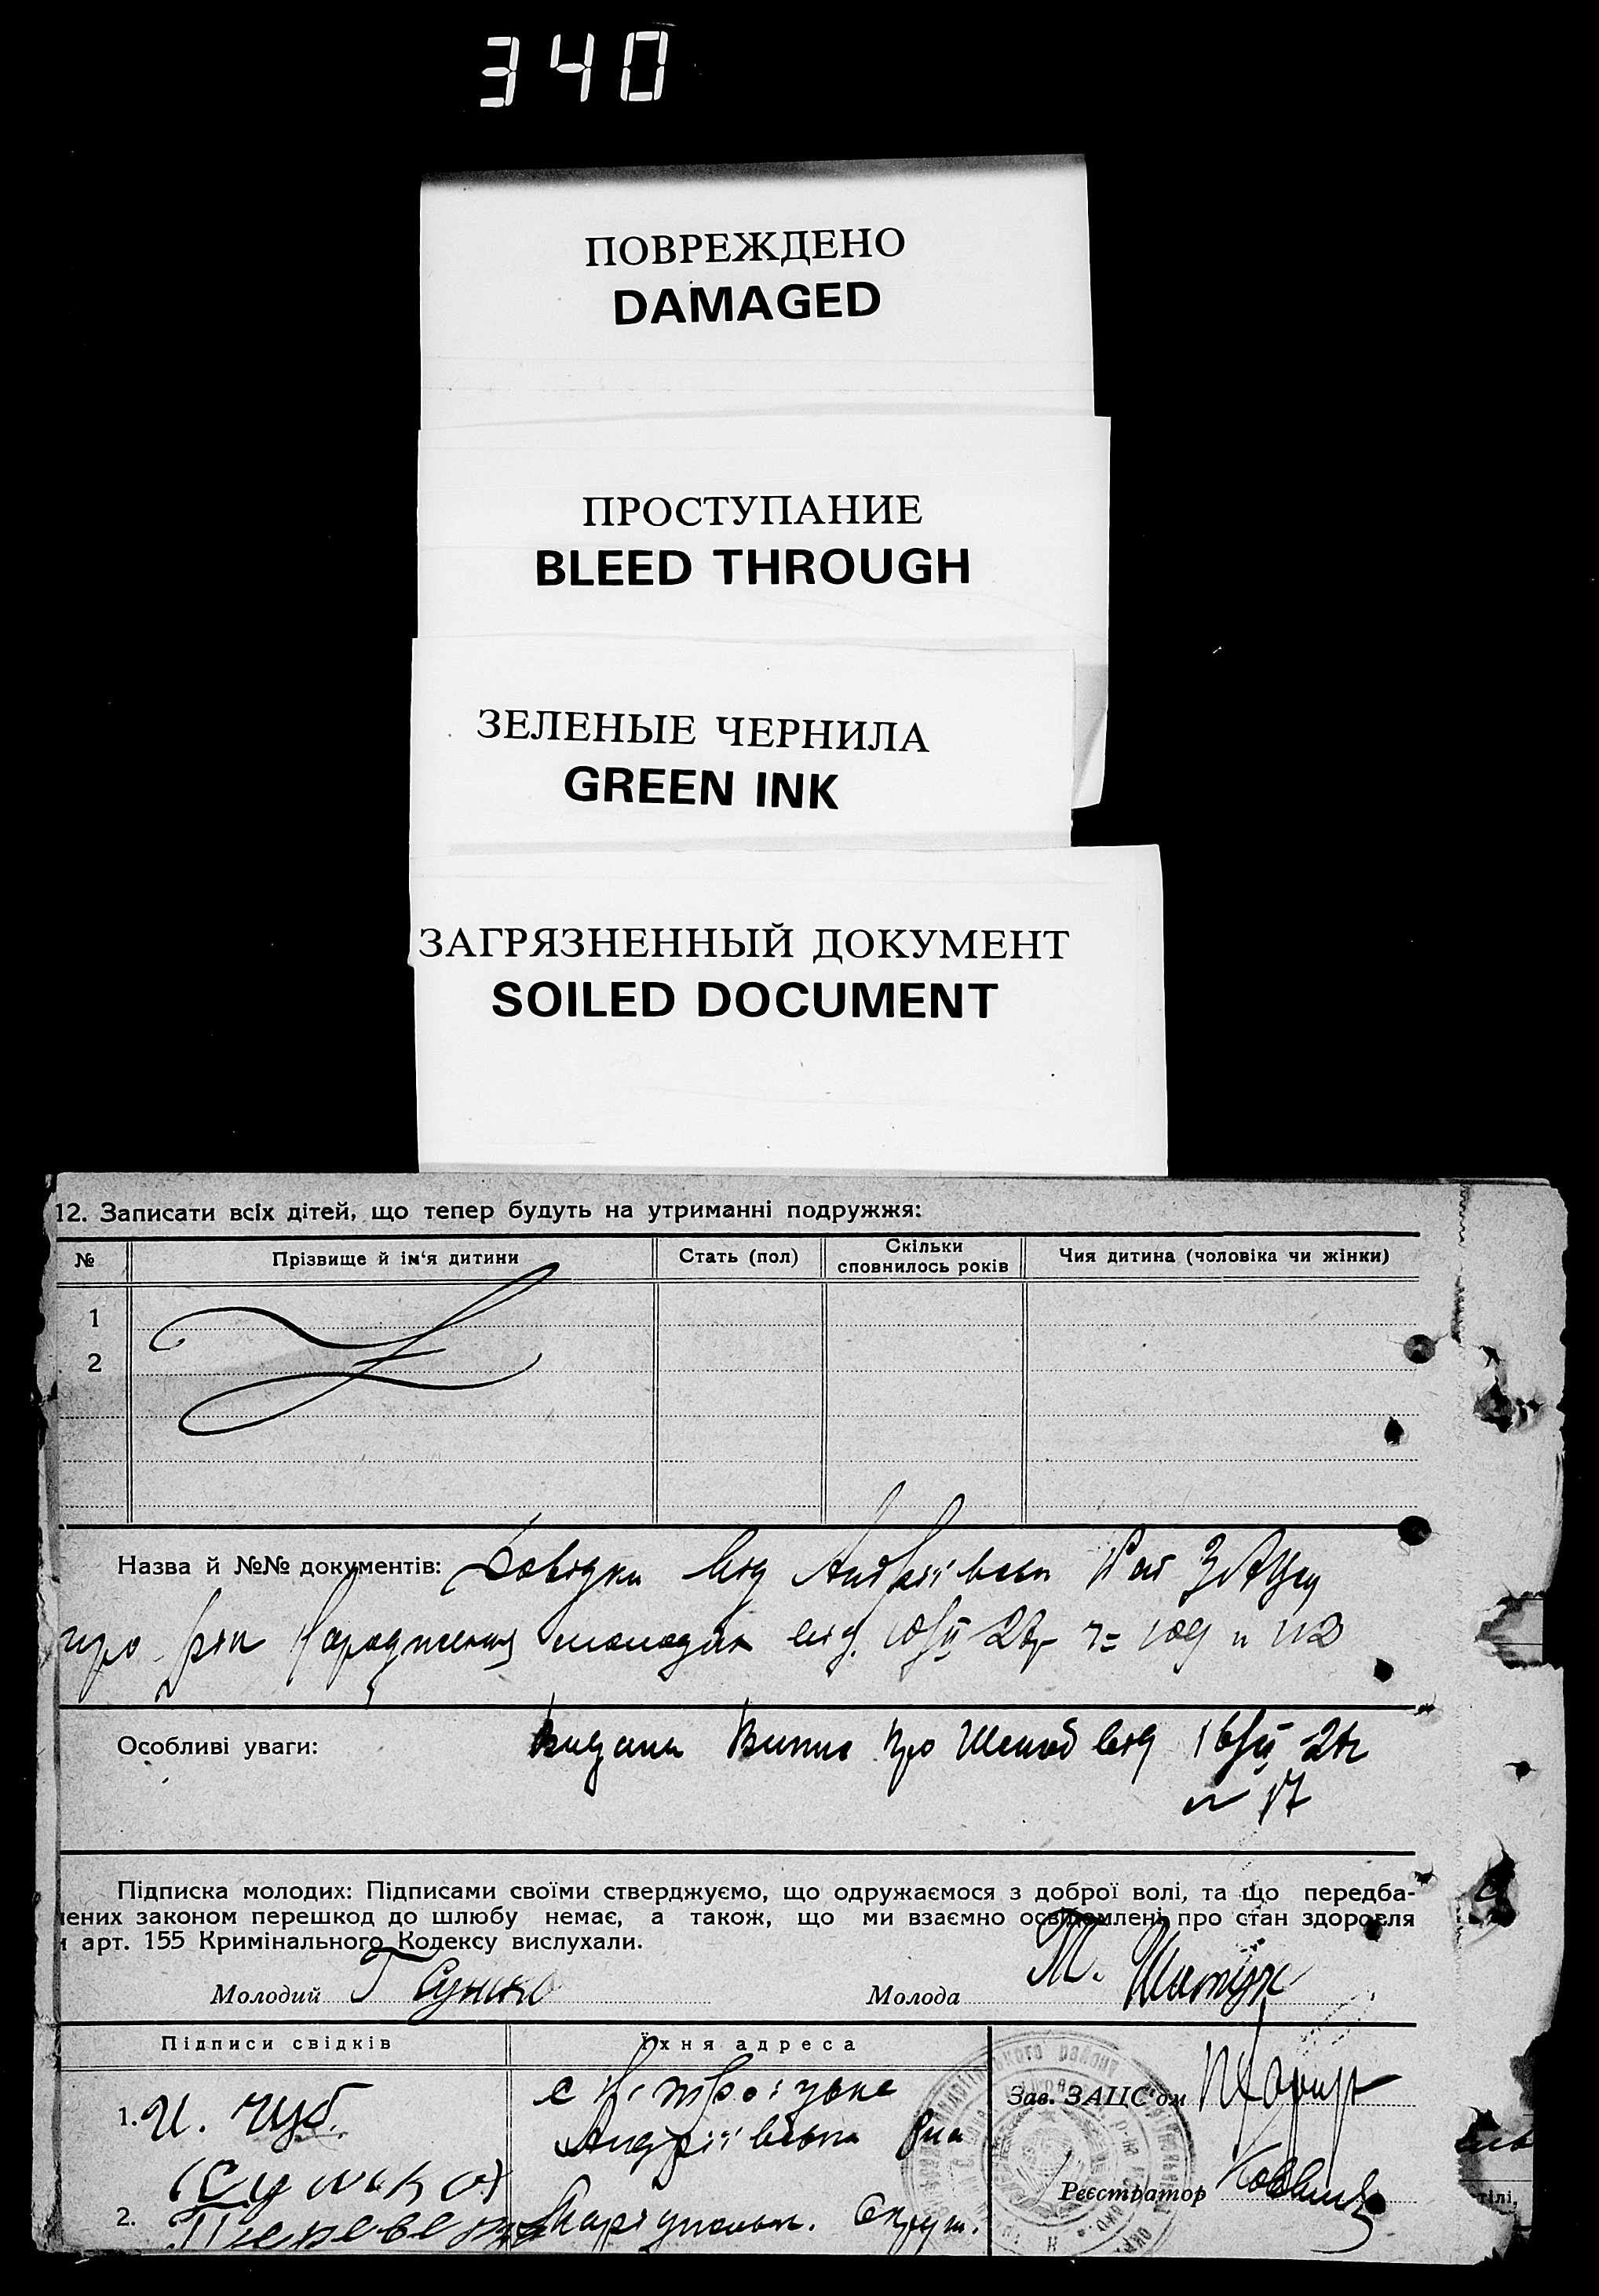 340
ПОВРЕЖДЕНО
DAMAGED
ПРОСТУПАНИЕ
BLEED THROUGH
ЗЕЛЕНЫЕ ЧЕРНИЛА
GREEN INK
ЗАГРЯЗНЕННЫЙ ДОКУМЕНТ
SOILED DOCUMENT
12. Записати всіх дітей, що тепер будуть на утриманні подружжя:
№ Прізвище й ім'я дитини Стать (пол) Скільки сповнилось років Чия дитина (чоловіка чи жінки)
1
2
Назва й №№ документів: Довідка від Андріївськ
про рік народження молодих від.
Особливі уваги: Видана Випис про Шлюб від 16/II
17
Підписка молодих: Підписами своїми стверджуємо, що одружаємося з доброї волі, та що передба-
чених законом перешкод до шлюбу немає, а також, що ми взаємно освідомлені про стан здоровля
й арт. 155 Кримінального Кодексу вислухали.
Молодий Г Сушко Молода М.
Підписи свідків Їхня адреса
Зав. ЗАЦС'ом
1. И. Чуб.
Андріївськ
(Сушко)
Реєстратор
2. Маріупольск. Округ.
тілі,